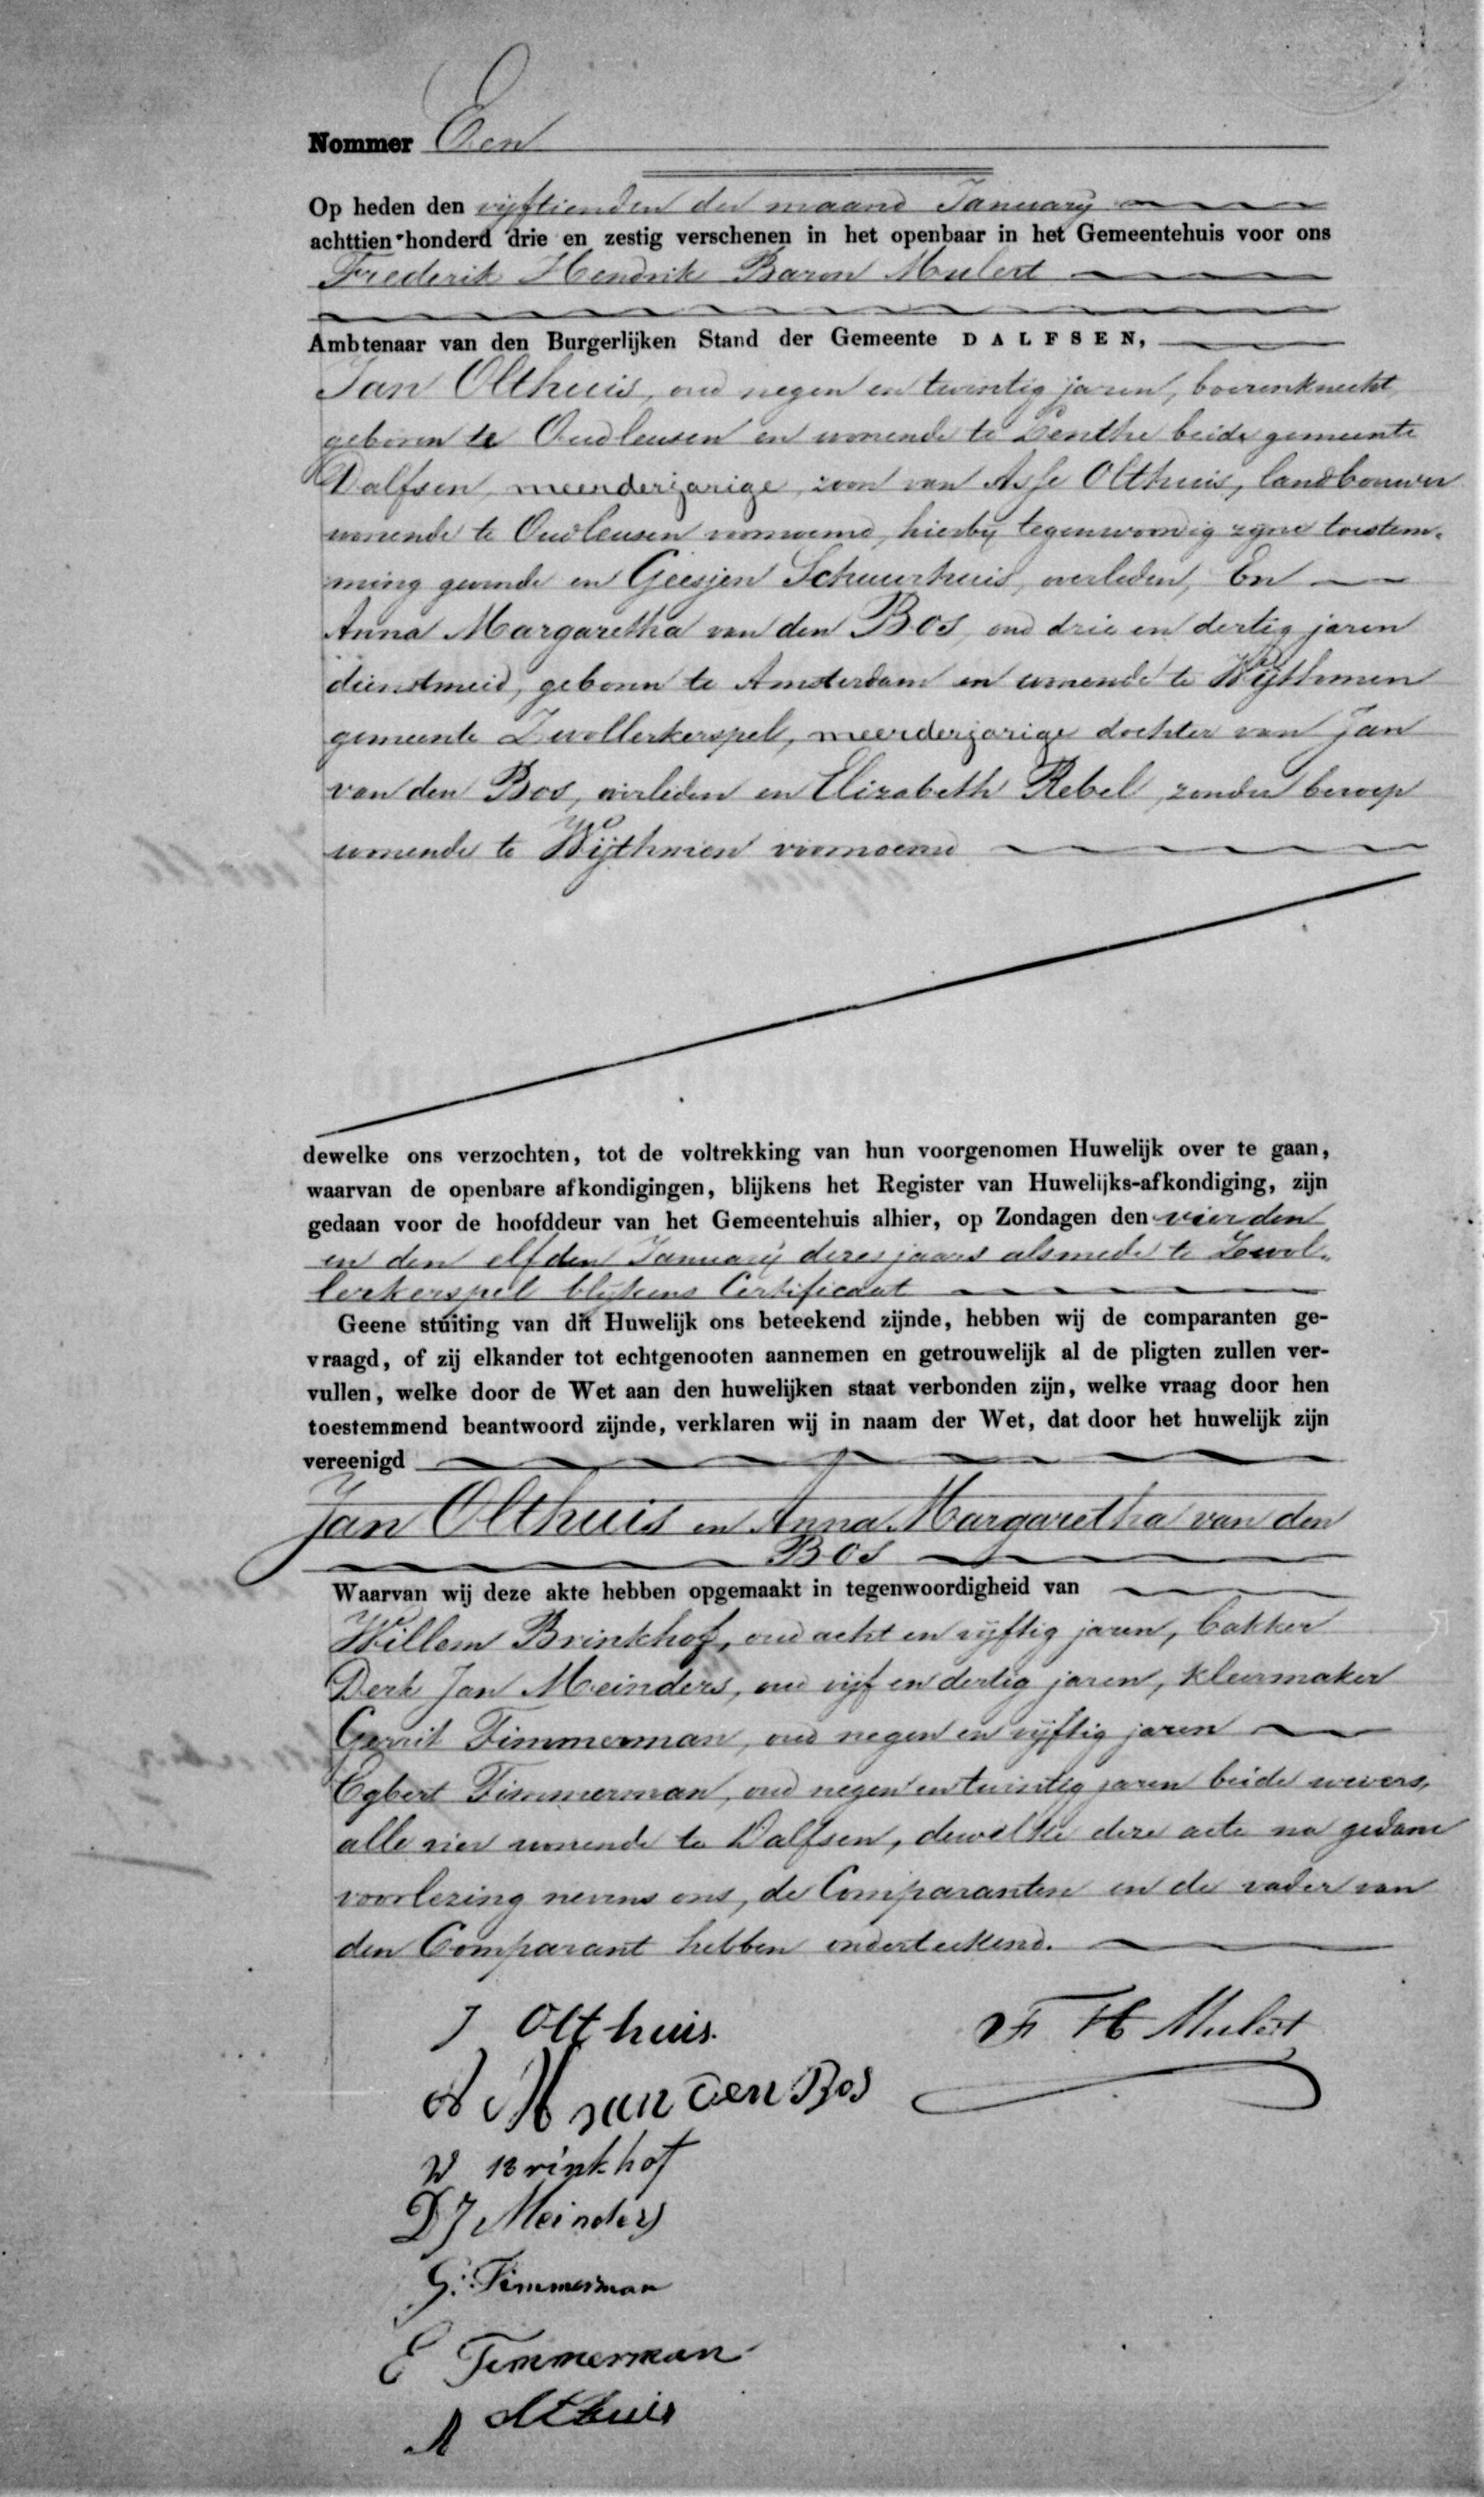 Nommer Een
Op heden den vijftienden der maand January
achttien honderd drie en zestig verschenen in het openbaar in het Gemeentehuis voor ons
Frederik Hendrik Baron Mulert
Ambtenaar van den Burgerlijken Stand der Gemeente DALFSEN,
Jan Olthuis, oud negen en twintig jaren, boerenknecht,
geboren te Oudleusen en wonende te Lenthe beide gemeente
Dalfsen, meerderjarige zoon van Asse Olthuis, landbouwer
wonende te Oudleusen voornoemd, hierbij tegenwoordig zijne toestem-
ming gevende en Geesjen Schuurhuis, overleden, En
Anna Margaretha van den Bos, oud drie en dertig jaren
dienstmeid, geboren te Amsterdam en wonende te Wijthmen
gemeente Zwollerkerspel, meerderjarige dochter van Jan
van den Bos, overleden en Elizabeth Rebel, zonder beroep
wonende te Wijthmen voornoemd
dewelke ons verzochten, tot de voltrekking van hun voorgenomen Huwelijk over te gaan,
waarvan de openbare afkondigingen, blijkens het Register van Huwelijks-afkondiging, zijn
gedaan voor de hoofddeur van het Gemeentehuis alhier, op Zondagen den vierden
en den elfden January dezes jaars alsmede te Zwol-
lerkerspel blijkens Certificaat
Geene stuiting van dit Huwelijk ons beteekend zijnde, hebben wij de comparanten ge-
vraagd, of zij elkander tot echtgenooten aannemen en getrouwelijk al de pligten zullen ver-
vullen, welke door de Wet aan den huwelijken staat verbonden zijn, welke vraag door hen
toestemmend beantwoord zijnde, verklaren wij in naam der Wet, dat door het huwelijk zijn
vereenigd
Jan Olthuis en Anna Margaretha van den
Bos
Waarvan wij deze akte hebben opgemaakt in tegenwoordigheid van
Willem Brinkhof, oud acht en vijftig jaren, bakker
Derk Jan Meinders, oud vijf en dertig jaren, kleermaker
Gerrit Timmerman, oud negen en vijftig jaren
Egbert Timmerman, oud negen en twintig jaren beide wevers,
alle vier wonende te Dalfsen, dewelke deze acte na gedane
voorlezing nevens ons, de Comparanten en de vader van
den Comparant hebben onderteekend.
J Olthuis.
F H Mulert
A M van den Bos
W Brinkhof
DJ Meinders
G. Timmerman
E Timmerman
A Olthuis